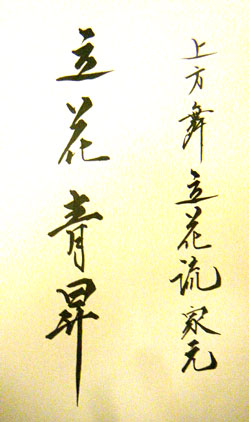 上方舞立花流家元
立花青昇